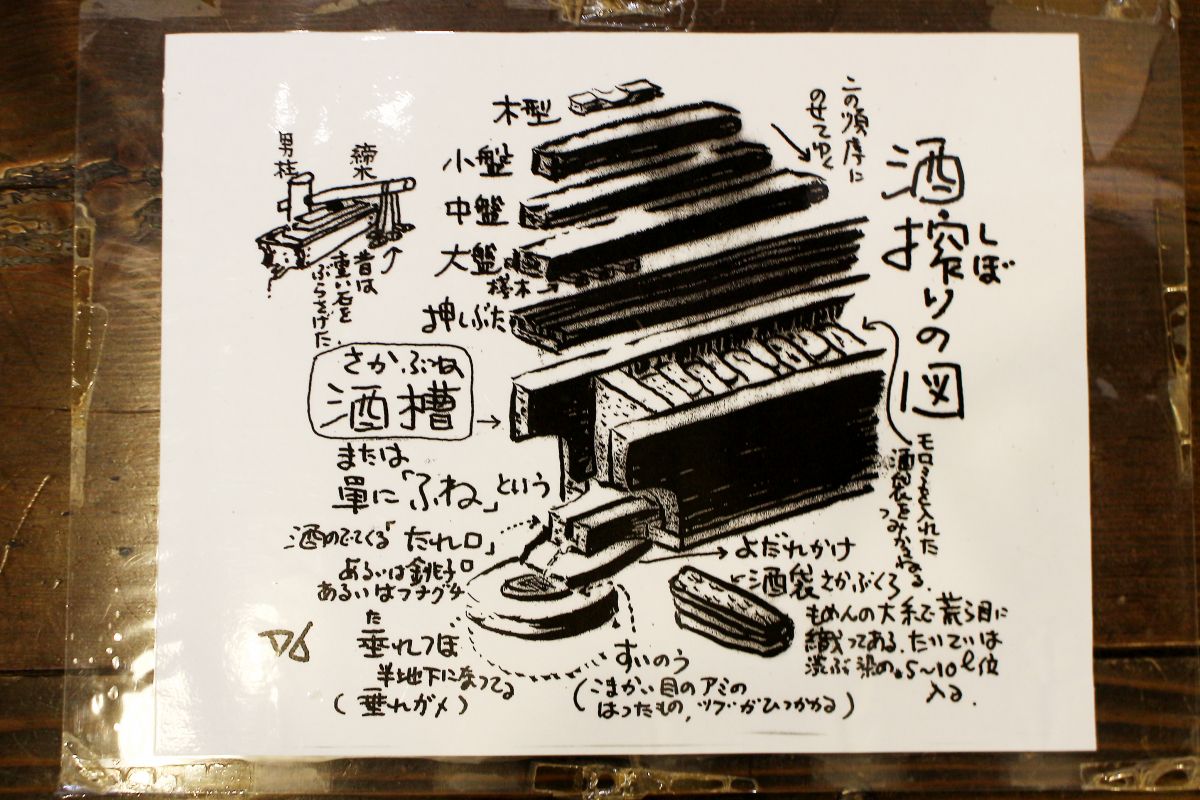 酒搾りの図
しぼ
この順序に
のせてゆく
木型
小盤
中盤
大盤
桟木
押しぶた
男柱
締木
昔は
重い石を
ぶらさげた.
さかぶね
酒槽
または
単に「ふね」という
モロミを入れた
酒袋をつみかさねる.
酒のでてくる「たれ口」
あるいは銚子口
あるいはフナグチ
よだれかけ
酒袋さかぶくろ
もめんの太糸で荒ら目に
織ってある.たいていは
渋ぶ染め.5〜10ℓ位
入る.
た
垂れつぼ
半地下に埋ってる
(垂れガメ)
すいのう
(こまかい目のアミの
はったもの,ツブがひっかかる)